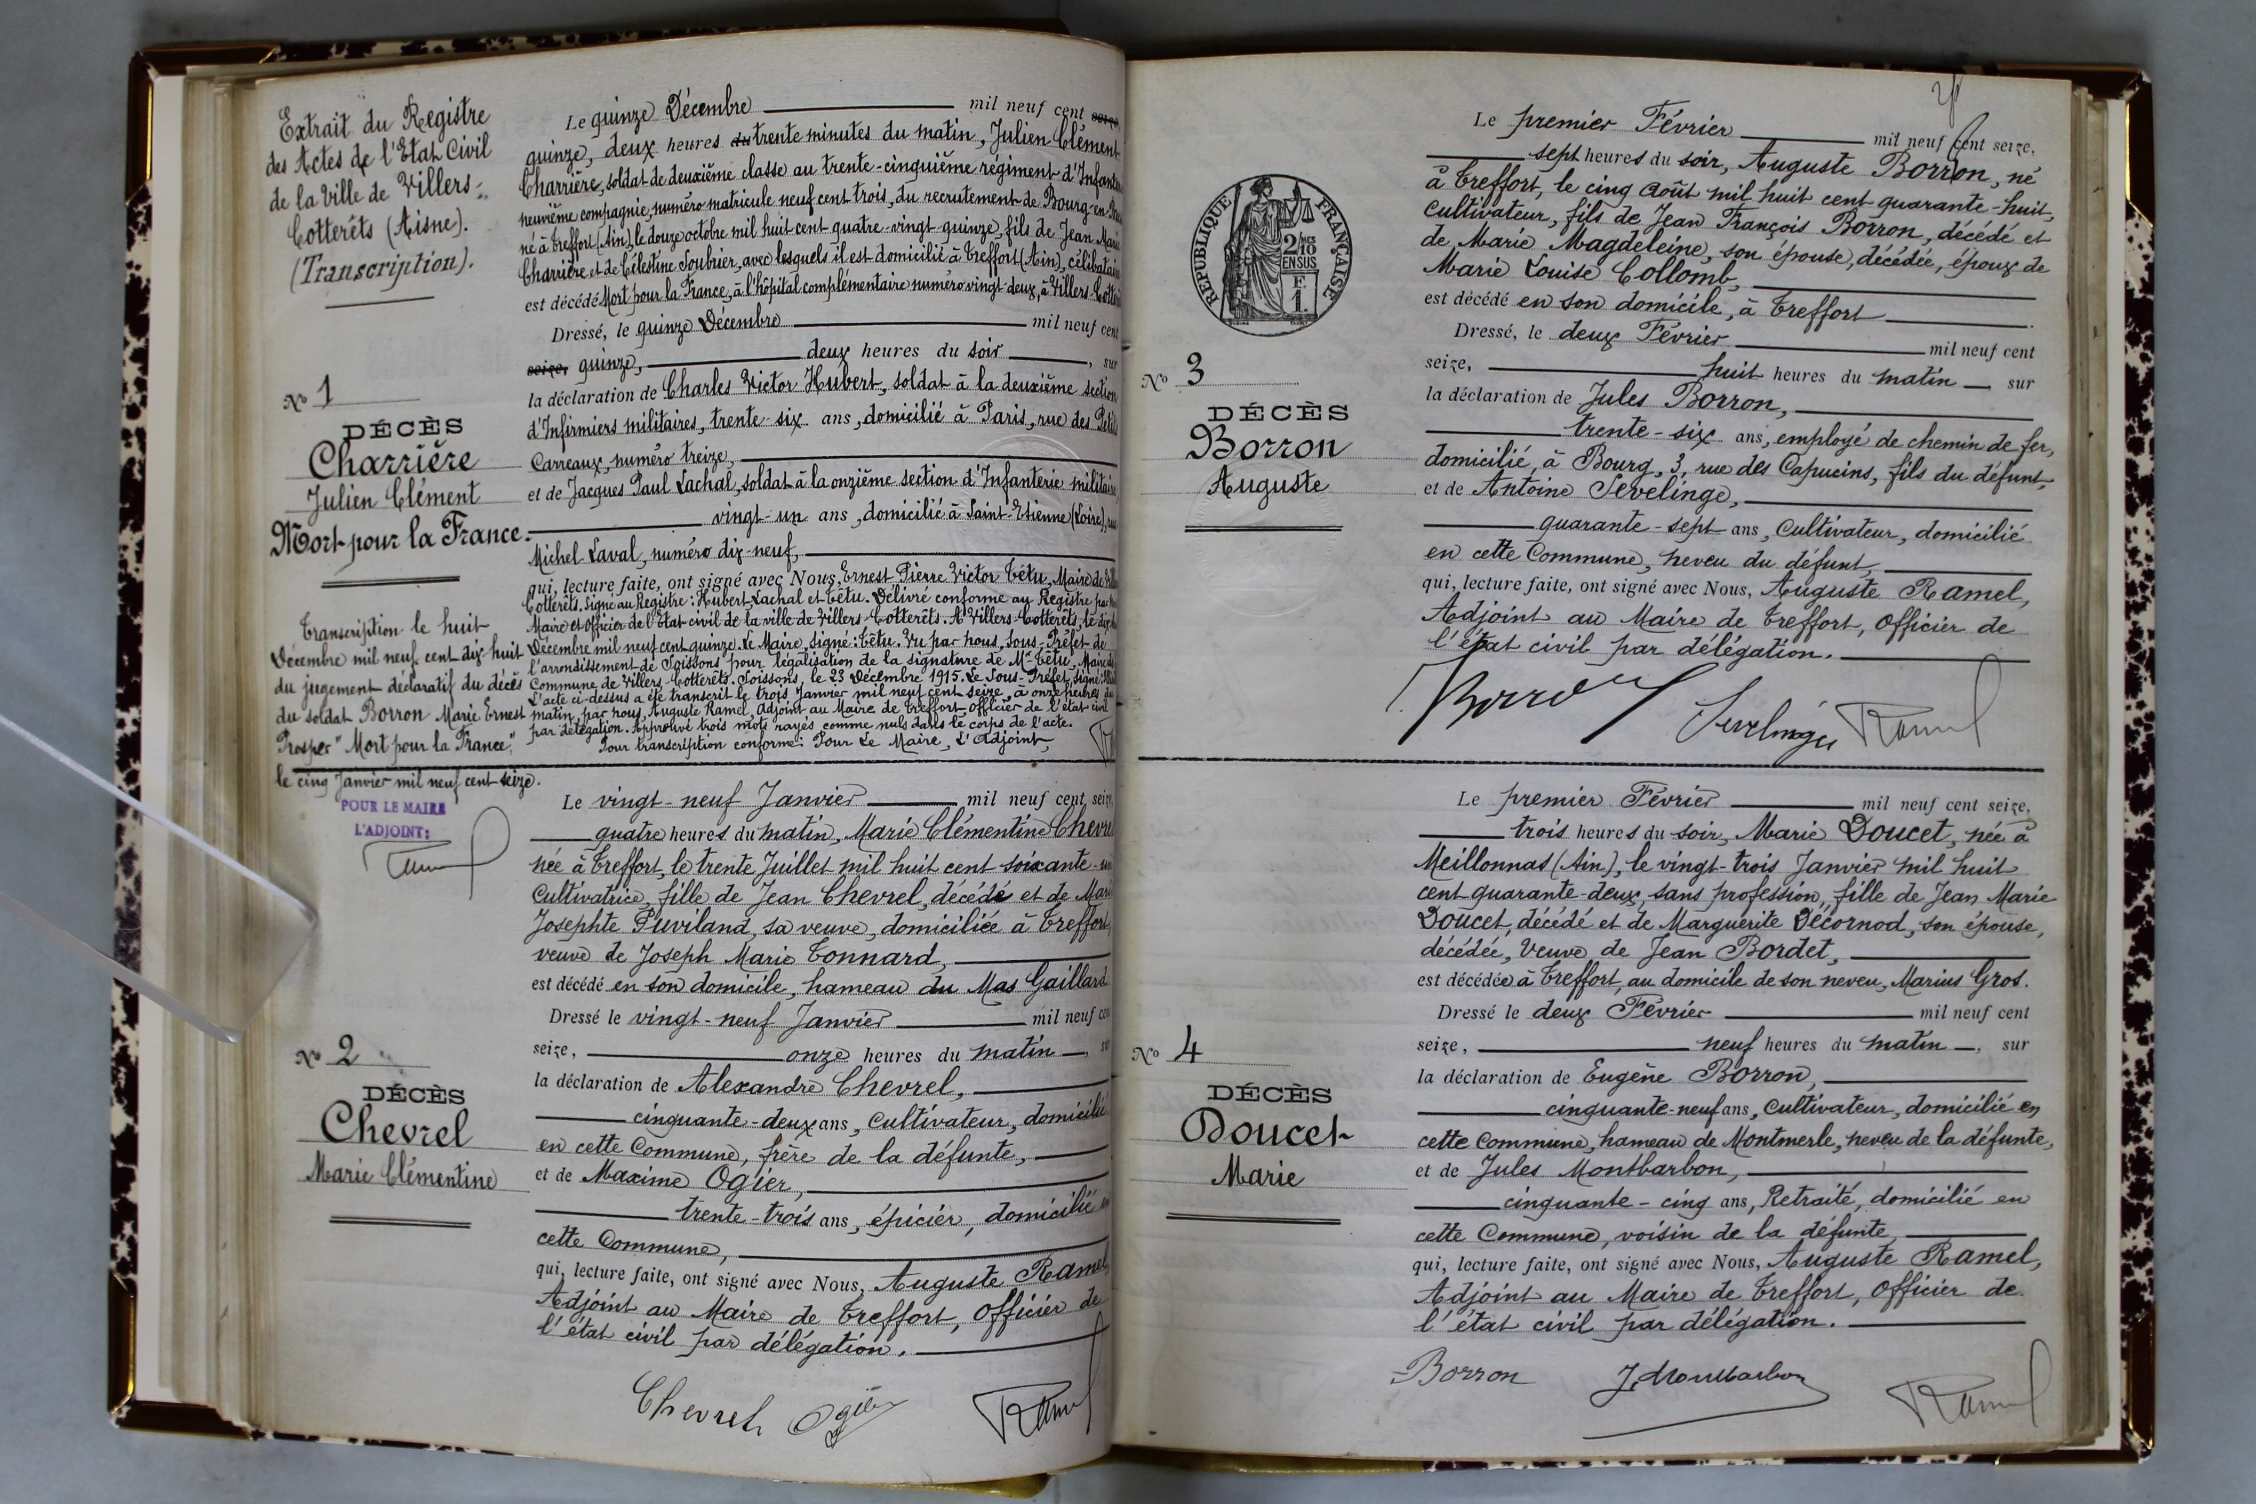 Extrait du Registre
des Actes de l'Etat Civil
de la Ville de Villers-
Cotterêts (Aisne).
(Transcription).
No 1
DÉCÈS
Charrière
Julien Clément
Mort pour la France.
Transcription le huit
Décembre mil neuf cent dix huit
du jugement déclaratif du décès
du soldat Borron Marie Ernest
Prosper "Mort pour la France",
le cinq Janvier mil neuf cent seize.
POUR LE MAIRE
L'ADJOINT:
Ramel
Le quinze Décembre mil neuf cent seize,
quinze, deux heures du trente minutes du matin, Julien Clément
Charrière, soldat de deuxième classe au trente-cinquième régiment d'
neuvième compagnie, numéro matricule neuf cent trois, du recrutement de Bourg-en-
né à Treffort (Ain), le douze octobre mil huit cent quatre-vingt-quinze, fils de Jean Marie
Charrière et de Célestine Soubrier, avec lesquels il est domicilié à Treffort (Ain), célibataire
est décédé Mort pour la France, à l'hôpital complémentaire numéro vingt-deux, à Villers-
Dressé, le quinze Décembre mil neuf cent
seize, quinze, deux heures du soir, sur
la déclaration de Charles Victor Hubert, soldat à la deuxième section
d'Infirmiers militaires, trente-six ans, domicilié à Paris, rue des Petits
Carreaux, numéro treize,
et de Jacques Paul Lachal, soldat à la onzième section d'Infanterie militaire
vingt-un ans, domicilié à Saint-Etienne (Loire), rue
Michel Laval, numéro dix-neuf,
qui, lecture faite, ont signé avec Nous, Ernest Pierre Victor Têtu, Maire de
Cotterêts. Signé au Registre: Hubert, Lachal et Têtu. Délivré conforme au Registre par
Maire et Officier de l'Etat civil de la ville de Villers-Cotterêts. A Villers-Cotterêts, le
Décembre mil neuf cent quinze. Le Maire, signé: Têtu. Vu par nous, Sous-Préfet de
l'arrondissement de Soissons pour légalisation de la signature de Mr Têtu, Maire
Commune de Villers-Cotterêts. Soissons, le 23 Décembre 1915. Le Sous-Préfet, signé:
L'acte ci-dessus a été transcrit le trois Janvier mil neuf cent seize, à onze heures du
matin, par nous, Auguste Ramel, Adjoint au Maire de Treffort, Officier de l'état civil
par délégation. Approuvé trois mots rayés comme nuls dans le corps de l'acte.
Pour transcription conforme: Pour Le Maire, L'Adjoint,
No 2
DÉCÈS
Chevrel
Marie Clémentine
Le vingt-neuf Janvier mil neuf cent seize,
quatre heures du matin, Marie Clémentine Chevrel
née à Treffort, le trente Juillet mil huit cent soixante-
Cultivatrice, fille de Jean Chevrel, décédé et de Marie
Josephte Puviland, sa veuve, domiciliée à Treffort,
veuve de Joseph Marie Tonnard,
est décédé en son domicile, hameau du Mas Gaillard
Dressé le vingt-neuf Janvier mil neuf cent
seize, onze heures du matin, sur
la déclaration de Alexandre Chevrel,
cinquante-deux ans, Cultivateur, domicilié
en cette Commune, frère de la défunte,
et de Maxime Ogier,
trente-trois ans, épicier, domicilié en
cette Commune,
qui, lecture faite, ont signé avec Nous, Auguste Ramel,
Adjoint au Maire de Treffort, Officier de
l'état civil par délégation.
Chevrel Ogier Ramel
RÉPUBLIQUE FRANÇAISE
2/10 EN SUS
F
1.
No 3
DÉCÈS
Borron
Auguste
Le premier Février mil neuf cent seize,
sept heures du soir, Auguste Borron, né
à Treffort, le cinq Août mil huit cent quarante-huit,
Cultivateur, fils de Jean François Borron, décédé et
de Marie Magdeleine, son épouse, décédée, époux de
Marie Louise Collomb,
est décédé en son domicile, à Treffort
Dressé, le deux Février mil neuf cent
seize, huit heures du matin, sur
la déclaration de Jules Borron,
trente-six ans, employé de chemin de fer,
domicilié, à Bourg, 3, rue des Capucins, fils du défunt,
et de Antoine Sevelinge,
quarante-sept ans, Cultivateur, domicilié
en cette Commune, neveu du défunt,
qui, lecture faite, ont signé avec Nous, Auguste Ramel,
Adjoint au Maire de Treffort, Officier de
l'état civil par délégation.
Borron Sevelinge Ramel
No 4
DÉCÈS
Doucet
Marie
Le premier Février mil neuf cent seize,
trois heures du soir, Marie Doucet, née à
Meillonnas (Ain), le vingt-trois Janvier mil huit
cent quarante-deux, sans profession, fille de Jean Marie
Doucet, décédé et de Marguerite Décornod, son épouse,
décédée, Veuve de Jean Bordet,
est décédée à Treffort, au domicile de son neveu, Marius Gros.
Dressé le deux Février mil neuf cent
seize, neuf heures du matin, sur
la déclaration de Eugène Borron,
cinquante-neuf ans, Cultivateur, domicilié en
cette Commune, hameau de Montmerle, neveu de la défunte,
et de Jules Montbarbon,
cinquante-cinq ans, Retraité, domicilié en
cette Commune, voisin de la défunte,
qui, lecture faite, ont signé avec Nous, Auguste Ramel,
Adjoint au Maire de Treffort, Officier de
l'état civil par délégation.
Borron J. Montbarbon Ramel